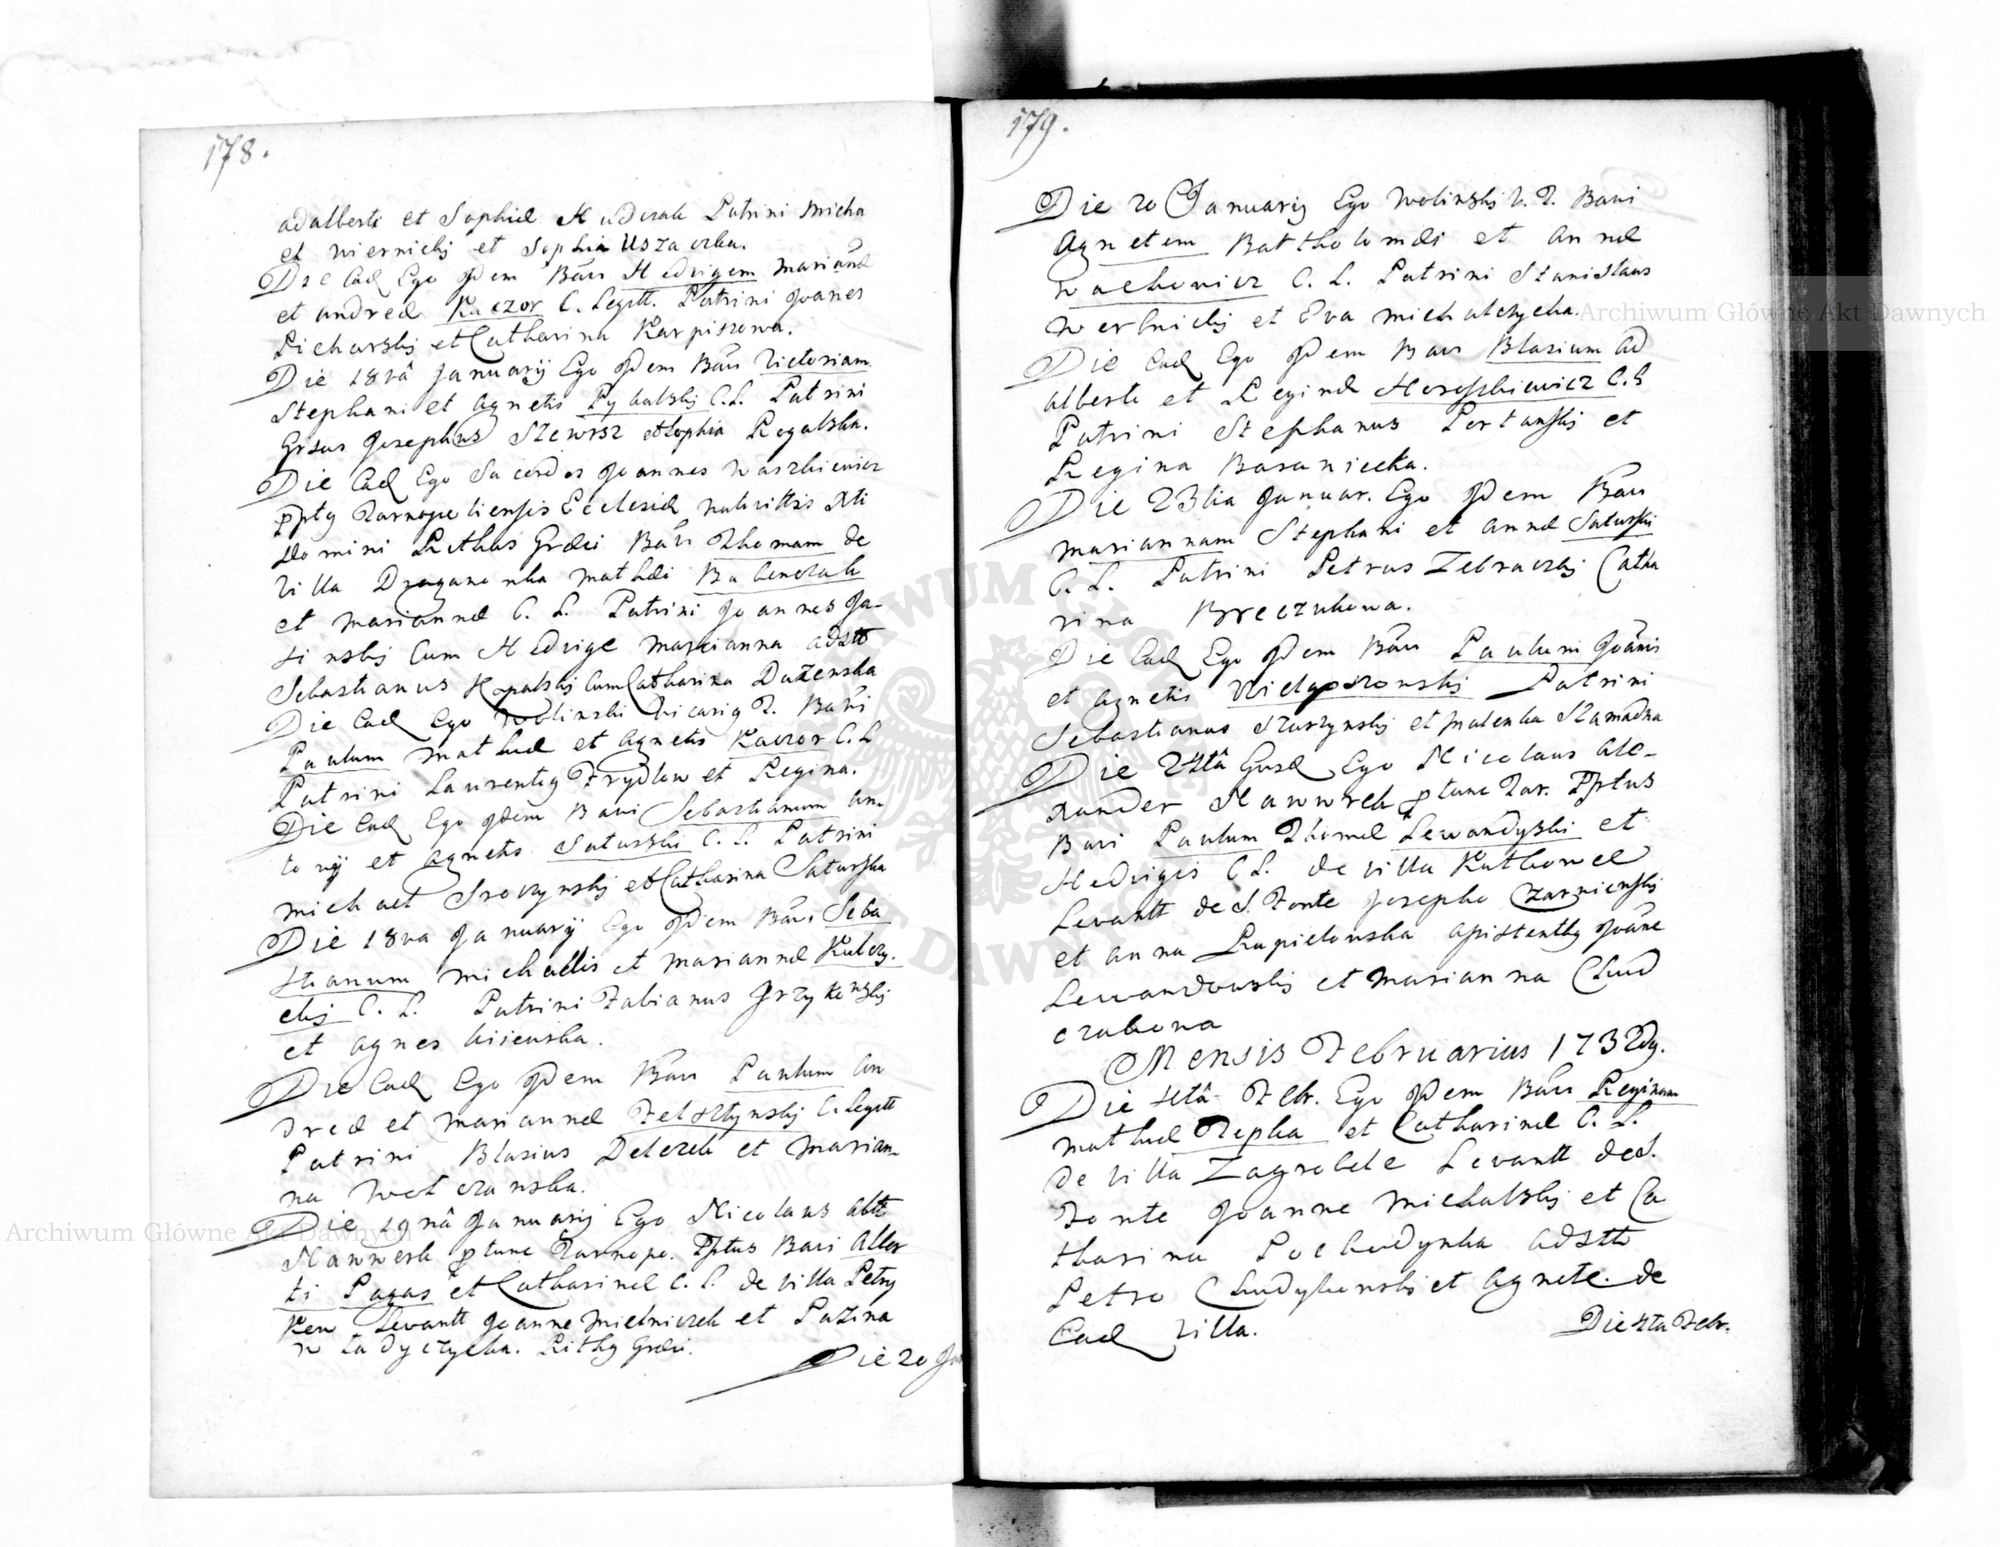 178.
adalberti et Sophiæ Hudczak Patrini Micha
et Wiernickij et Sophia Uszaczka.
Die Ead Ego Idem Bãvi Hedvigem Mariãnæ
et andreæ Kaczor C. Legitt. Patrini Joanes
Picharskij et Catharina Karpiszowa.
Die 18vâ Januarij Ego Idem Bãvi Victoriam
Stephani et Agnetis Pykalskij C. L. Patrini
Grsus Josephus Szewisz et Sophia Rogalska.
Die Ead Ego Sacerdos Joannes Waszkiewicz
Ppty Tarnopoliensis Ecclesiæ nativittis Xti
Domini Rithus Græci Bãvi Thomam de
Villa Draganowka Mathæi
et Mariannæ C. L. Patrini Joannes Ja-
sinskij Cum Hedvige Marianna adstt
Sebastianus Kopalskij Cum Catharina Duzenska
Die Ead Ego Wolinski Vicariq T. Bãvi
Paulum Mathiæ et Agnetis Kaczor C. L
Patrini Laurentiq Frydlow et Regina.
Die Ead Ego Idem Bavi Sebastianum An-
to nij et Agnetis Saturski C. L. Patrini
Michael Sroczynskij et Catharina Saturska
Die 18va Januarij Ego Idem Bãvi Seba
stianum Michaelis et Mariannæ Kulczy.
ckij C. L. Patrini Fabianus Grzykowskij
et Agnes
Die Ead Ego Idem Bãvi Paulum An
dreæ et Mariannæ Felsztynskij C. Legitt
Patrini Blasius Delczek et Marian-
na Wolczanska.
Die 19nâ Januarij Ego Nicolaus Altt
Nawwrek ptunc Tarnopo. Pptus Bavi Alber
ti Pagas et Catharinæ C. L. de villa Petry
Kow Levantt Joanne Mielniczek et Pazina
W ladyczycka. Rithq Græci.
Die 20 Jan
179.
Die 20 Januarij Ego Wolinskij V. T. Bavi
Agnetem Bartholomæi et Annæ
Wachowicz C. L. Patrini Stanislaus
Werbickij et Eva Michalczycka.
Die Ead Ego Idem Bavi Blasium Ad
alberti et Reginæ Horoszkiewicz C. L
Patrini Stephanus Portanskij et
Regina Baraniecka.
Die 23tia Januar. Ego Idem Bãvi
Mariannam Stephani et Annæ Saturski
C. L. Patrini Petrus Zebraczkij Catha
rina Breczukowa.
Die Ead Ego Idem Bãvi Paulum Joãnis
et Agnetis Wielgoszowskij Patrini
Sebastianus Skurzynskij et Malenka Szamadna
Die 24tâ Ego Nicolaus Ale-
xander Nawwrek ptunc Tar. Pptus
Bavi Paulum Thomæ Lewandyski et
Hedvigis C L. de villa Kutkowce
Levantt de S. Fonte Josepho Czarnienskij
et Anna Rupielowska assistenttq Joãne
Lewandowskij et Marianna Chud
czakowa
Mensis Februarius 1732dq.
Die 4tâ Febr. Ego Idem Bãvi Reginam
Mathiæ Rzepka et Catharinæ C. L.
de Villa Zagrobele Levantt de S.
Fonte Joanne Michalskij et Ca
tharina Pochodynka adstt
Petro Chudykowskij et Agnete de
Ead Villa.
Die 4ta Febr.
Archiwum Główne Akt Dawnych
Archiwum Główne Akt Dawnych